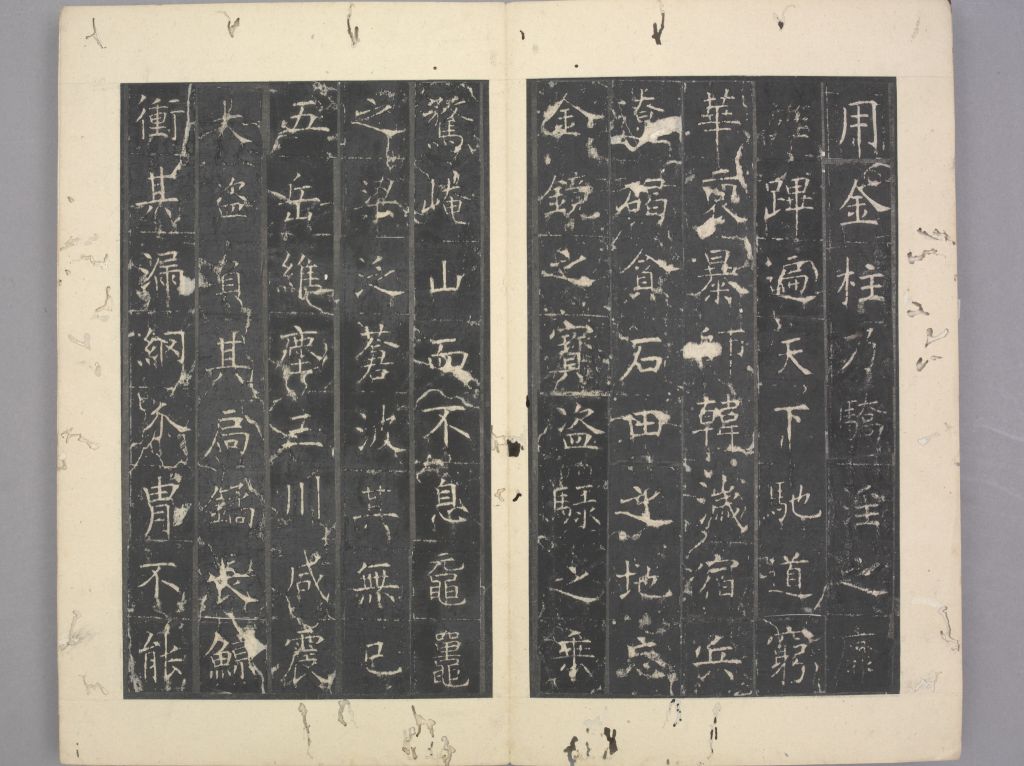 用金柱乃驕淫之靡
蹕遍天下馳道窮
華裔暴師韓濊宿兵
遼碣貪石田之地忘
金鏡之寶盜騄之乘
驚崦山而不息黿鼉
之梁泛蒼波其無已
五岳維塵三川咸震
大盜負其扃鐍長鯨
衝其漏網介冑不能